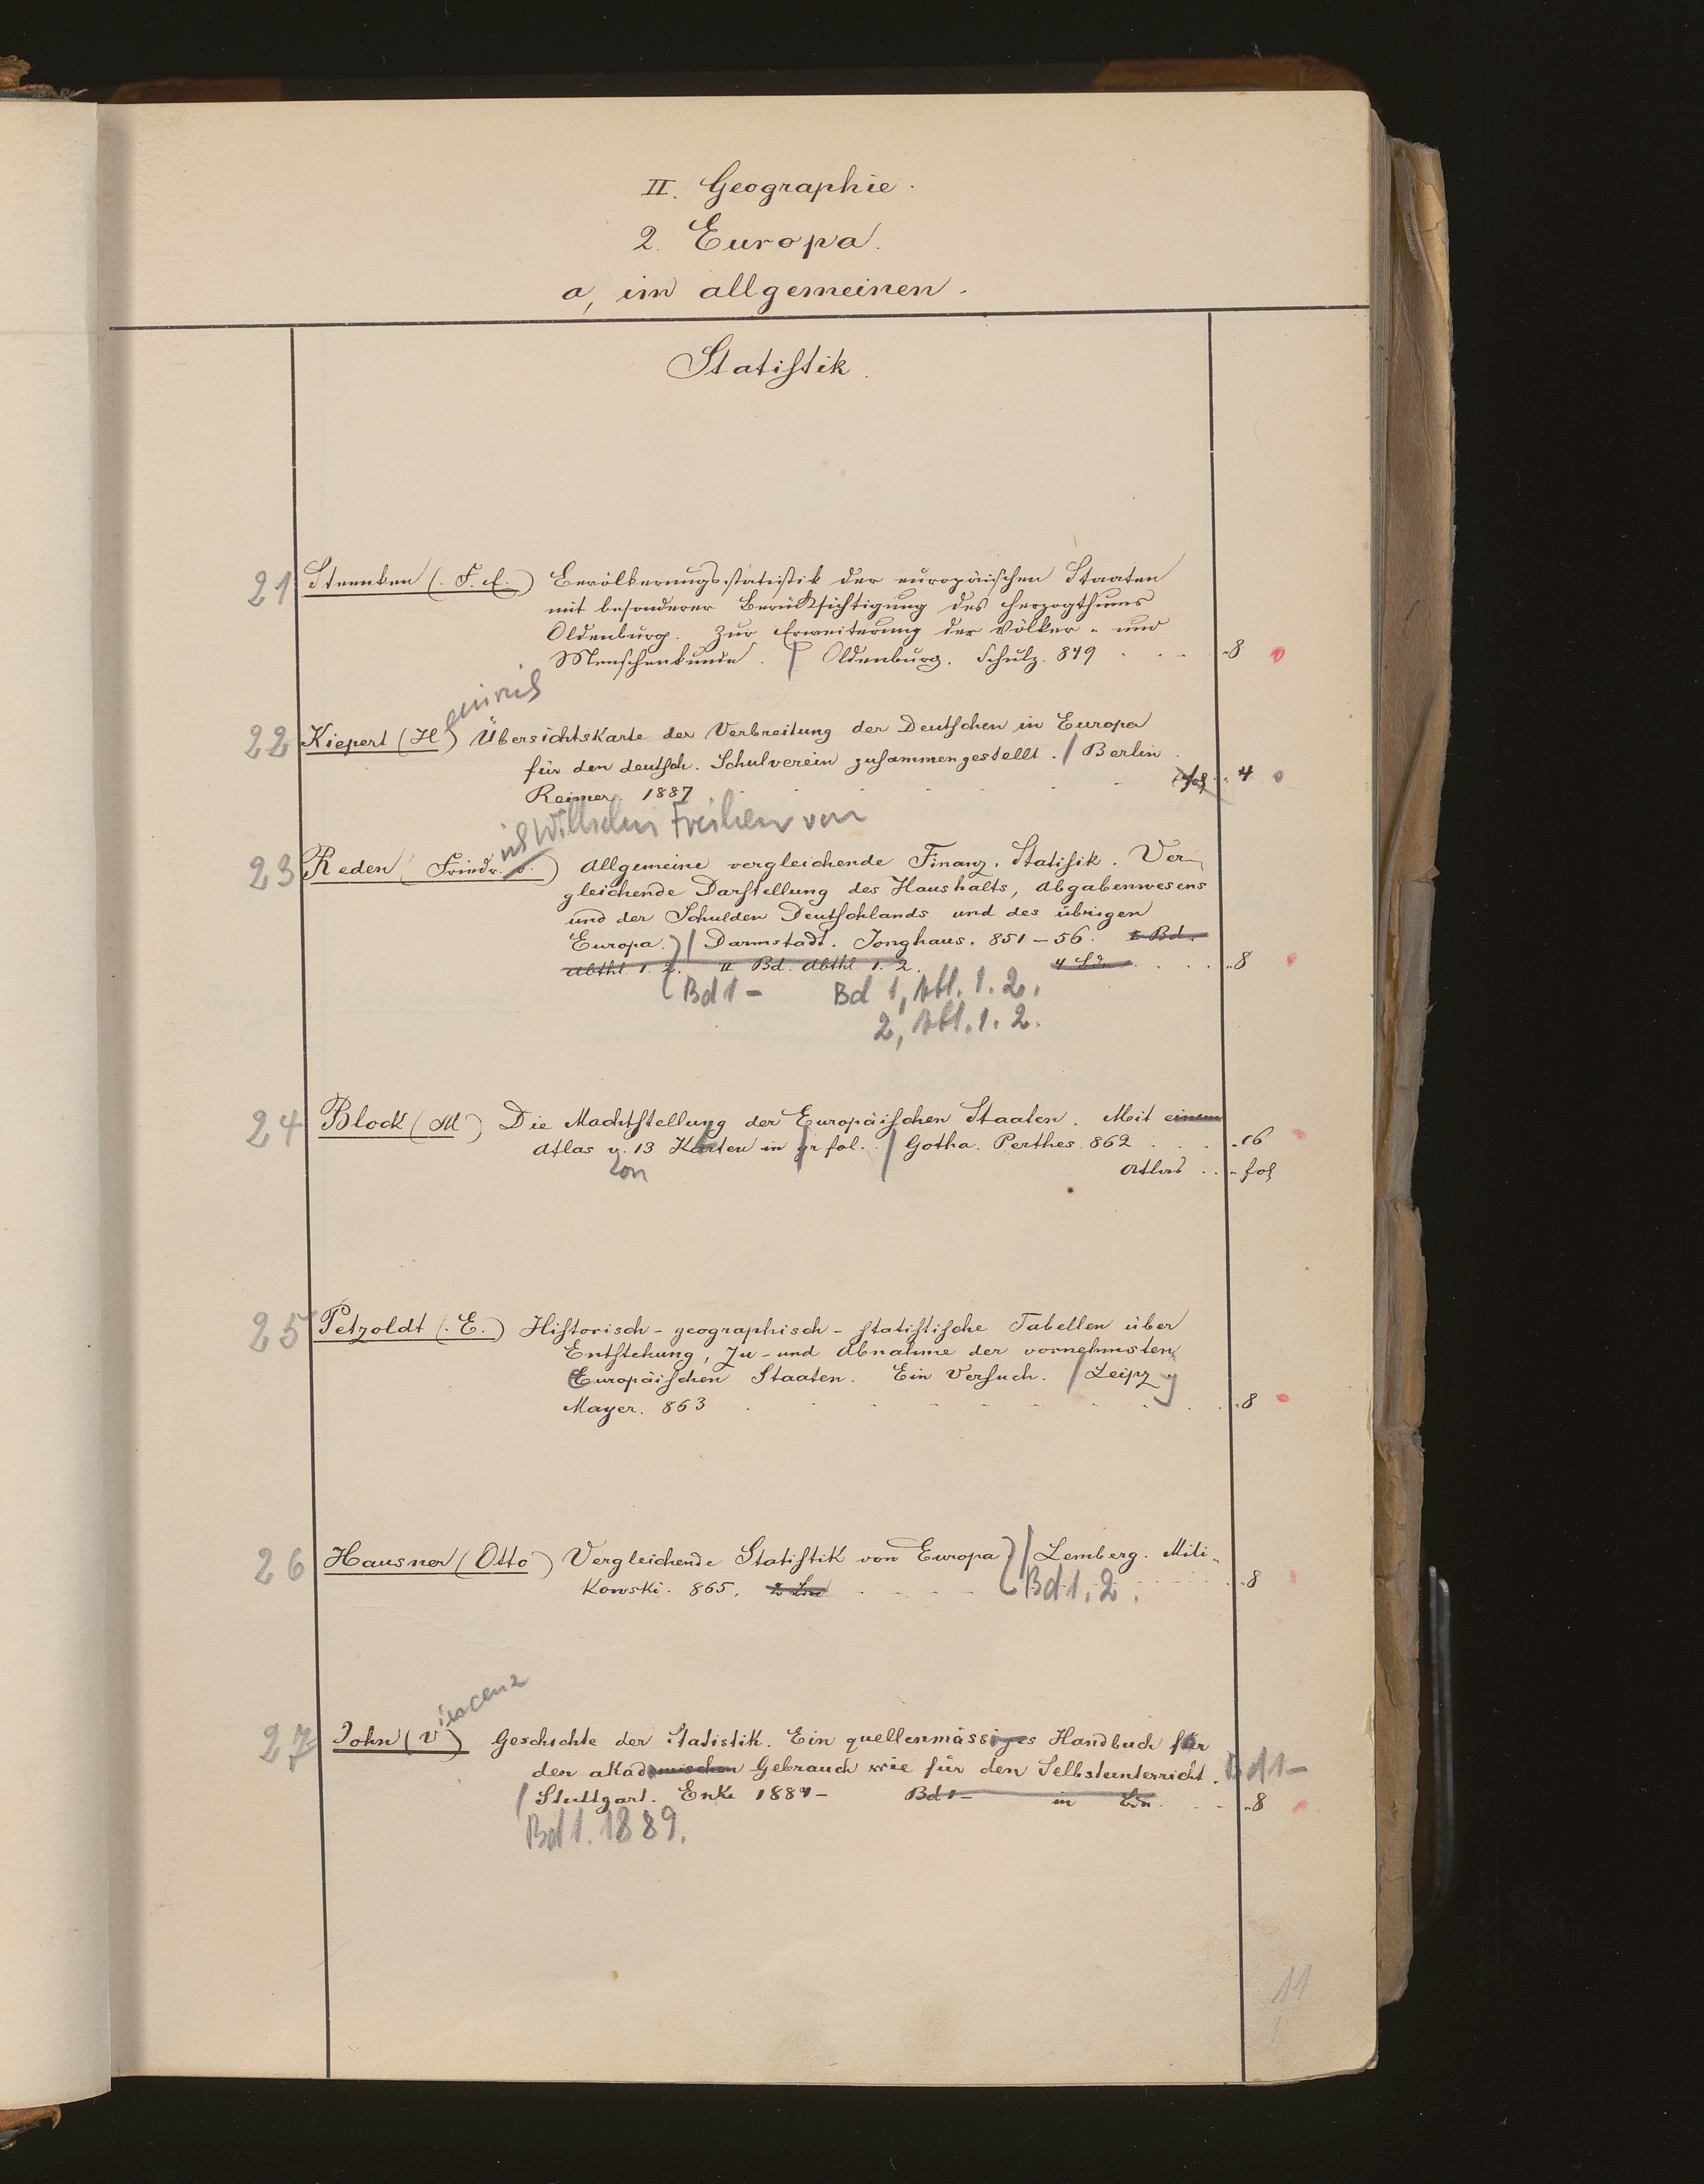 II. Geographie.
2. Europa.
a, im allgemeinen.
Statistik.
21 Steenken (. F. E.) Bevölkerungsstatistik der europäischen Staaten
mit besonderer Berücksichtigung des Herzogthums
Oldenburg. Zur Erweiterung der Völker- und
Menschenkunde. / Oldenburg. Schulz. 849 .. 8
einrich
22 Kiepert (H) Übersichtskarte der Verbreitung der Deutschen in Europa
für den deutsch. Schulverein zusammengestellt. / Berlin
Reimer. 1887 fol .. 4
ich Wilhelm Freiherr von
23 Reden (Friedr. v.) Allgemeine vergleichende Finanz. Statistik. Ver-
gleichende Darstellung des Haushalts, Abgabenwesens
und der Schulden Deutschlands und des übrigen
Europa. / Darmstadt. Jonghaus. 851-56. I Bd.
Abthl. 1. 2. II Bd. Abthl 1. 2. 4 Bde .. 8
Bd 1- Bd 1, Abt. 1. 2.
2, Abt. 1. 2.
24 Block (M) Die Machtstellung der Europäischen Staaten. Mit einem
Atlas v. 13 Karten in gr fol. / Gotha. Perthes. 862 .. 16
von Atlas .. fol
25 Petzoldt (. E.) Historisch-geographisch-statistische Tabellen über
Entstehung, Zu- und Abnahme der vornehmsten
Europäischen Staaten. Ein Versuch. / Leipzg
Mayer. 863 .. 8
26 Hausner (Otto) Vergleichende Statistik von Europa / Lemberg. Mili-
kowski. 865. 2 Bde .. 8
Bd 1. 2.
27 John (V) Geschichte der Statistik. Ein quellenmässiges Handbuch für
den akademischen Gebrauch wie für den Selbstunterricht. Bd 1-
/ Stuttgart. Enke 1884- Bd 1- in Bdn. .. 8
Bd 1. 1889.
11